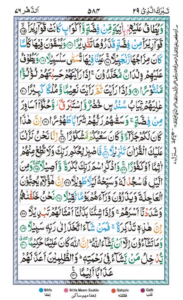 تَبٰرَكَ الَّذِیْ ٢٩
٥٨٣
اَلدَّهْر ٧٦
وَیُطَافُ عَلَیْهِمْ بِاٰنِیَةٍ مِّنْ فِضَّةٍ وَّاَكْوَابٍ كَانَتْ قَوَارِیْرَا۠
قَوَارِیْرَا۠ مِنْ فِضَّةٍ قَدَّرُوْهَا تَقْدِیْرًا وَیُسْقَوْنَ فِیْهَا كَاْسًا
كَانَ مِزَاجُهَا زَنْجَبِیْلًا عَیْنًا فِیْهَا تُسَمّٰی سَلْسَبِیْلًا وَیَطُوْفُ
عَلَیْهِمْ وِلْدَانٌ مُّخَلَّدُوْنَ اِذَا رَاَیْتَهُمْ حَسِبْتَهُمْ لُؤْلُؤًا
مَّنْثُوْرًا وَاِذَا رَاَیْتَ ثَمَّ رَاَیْتَ نَعِیْمًا وَّمُلْكًا كَبِیْرًا
عٰلِیَهُمْ ثِیَابُ سُنْدُسٍ خُضْرٌ وَّاِسْتَبْرَقٌ وَّحُلُّوْۤا اَسَاوِرَ
مِنْ فِضَّةٍ وَسَقٰىهُمْ رَبُّهُمْ شَرَابًا طَهُوْرًا اِنَّ هٰذَا كَانَ
لَكُمْ جَزَآءً وَّكَانَ سَعْیُكُمْ مَّشْكُوْرًا اِنَّا نَحْنُ نَزَّلْنَا
عَلَیْكَ الْقُرْاٰنَ تَنْزِیْلًا فَاصْبِرْ لِحُكْمِ رَبِّكَ وَلَا تُطِعْ مِنْهُمْ
اٰثِمًا اَوْ كَفُوْرًا وَاذْكُرِ اسْمَ رَبِّكَ بُكْرَةً وَّاَصِیْلًا وَمِنَ
الَّیْلِ فَاسْجُدْ لَهٗ وَسَبِّحْهُ لَیْلًا طَوِیْلًا اِنَّ هٰۤؤُلَآءِ یُحِبُّوْنَ
الْعَاجِلَةَ وَیَذَرُوْنَ وَرَآءَهُمْ یَوْمًا ثَقِیْلًا نَحْنُ خَلَقْنٰهُمْ
وَشَدَدْنَاۤ اَسْرَهُمْ وَاِذَا شِئْنَا بَدَّلْنَاۤ اَمْثَالَهُمْ تَبْدِیْلًا
اِنَّ هٰذِهٖ تَذْكِرَةٌ فَمَنْ شَآءَ اتَّخَذَ اِلٰی رَبِّهٖ سَبِیْلًا
وَمَا تَشَآءُوْنَ اِلَّاۤ اَنْ یَّشَآءَ اللّٰهُ اِنَّ اللّٰهَ كَانَ عَلِیْمًا حَكِیْمًا
یُّدْخِلُ مَنْ یَّشَآءُ فِیْ رَحْمَتِهٖ وَالظّٰلِمِیْنَ اَعَدَّ لَهُمْ
عَذَابًا اَلِیْمًا